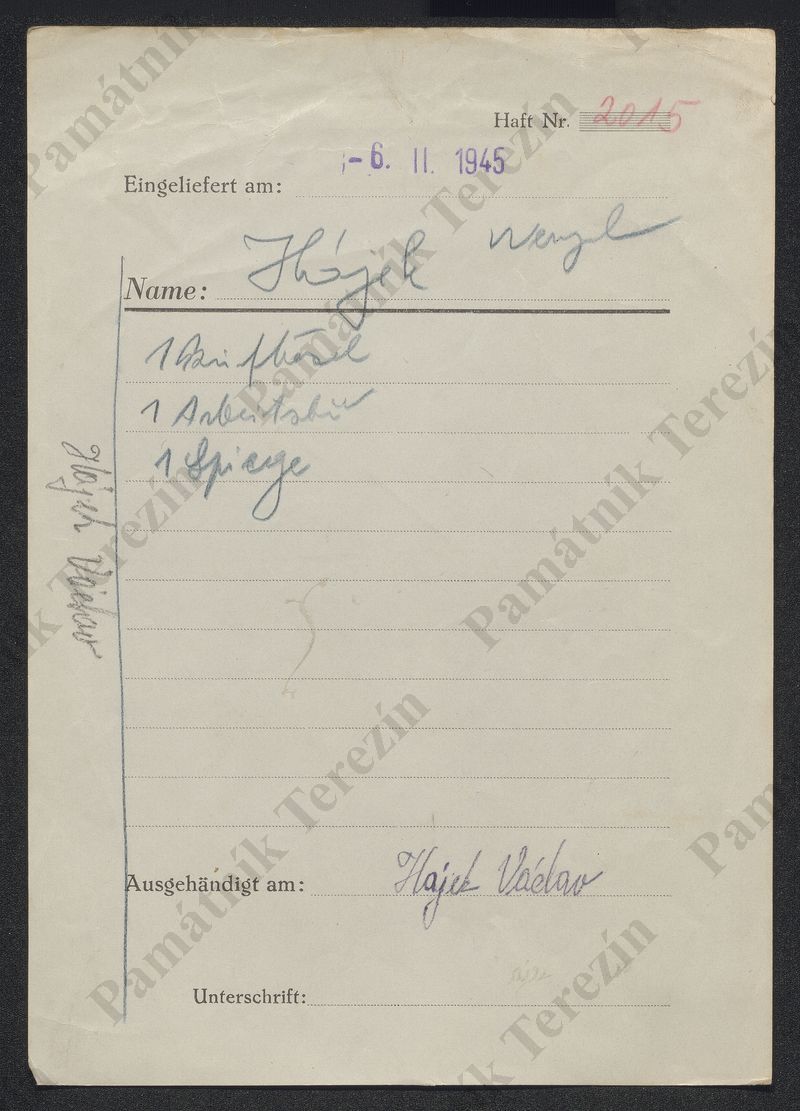 Haft Nr. 2015
Eingeliefert am: - 6. II. 1945
Name: Hájek Wenzel
1
1 Arbeitsbu
1 Spiege
Hájek Václav
Ausgehändigt am: Hajek Václav
Unterschrift:
Památník Terezín